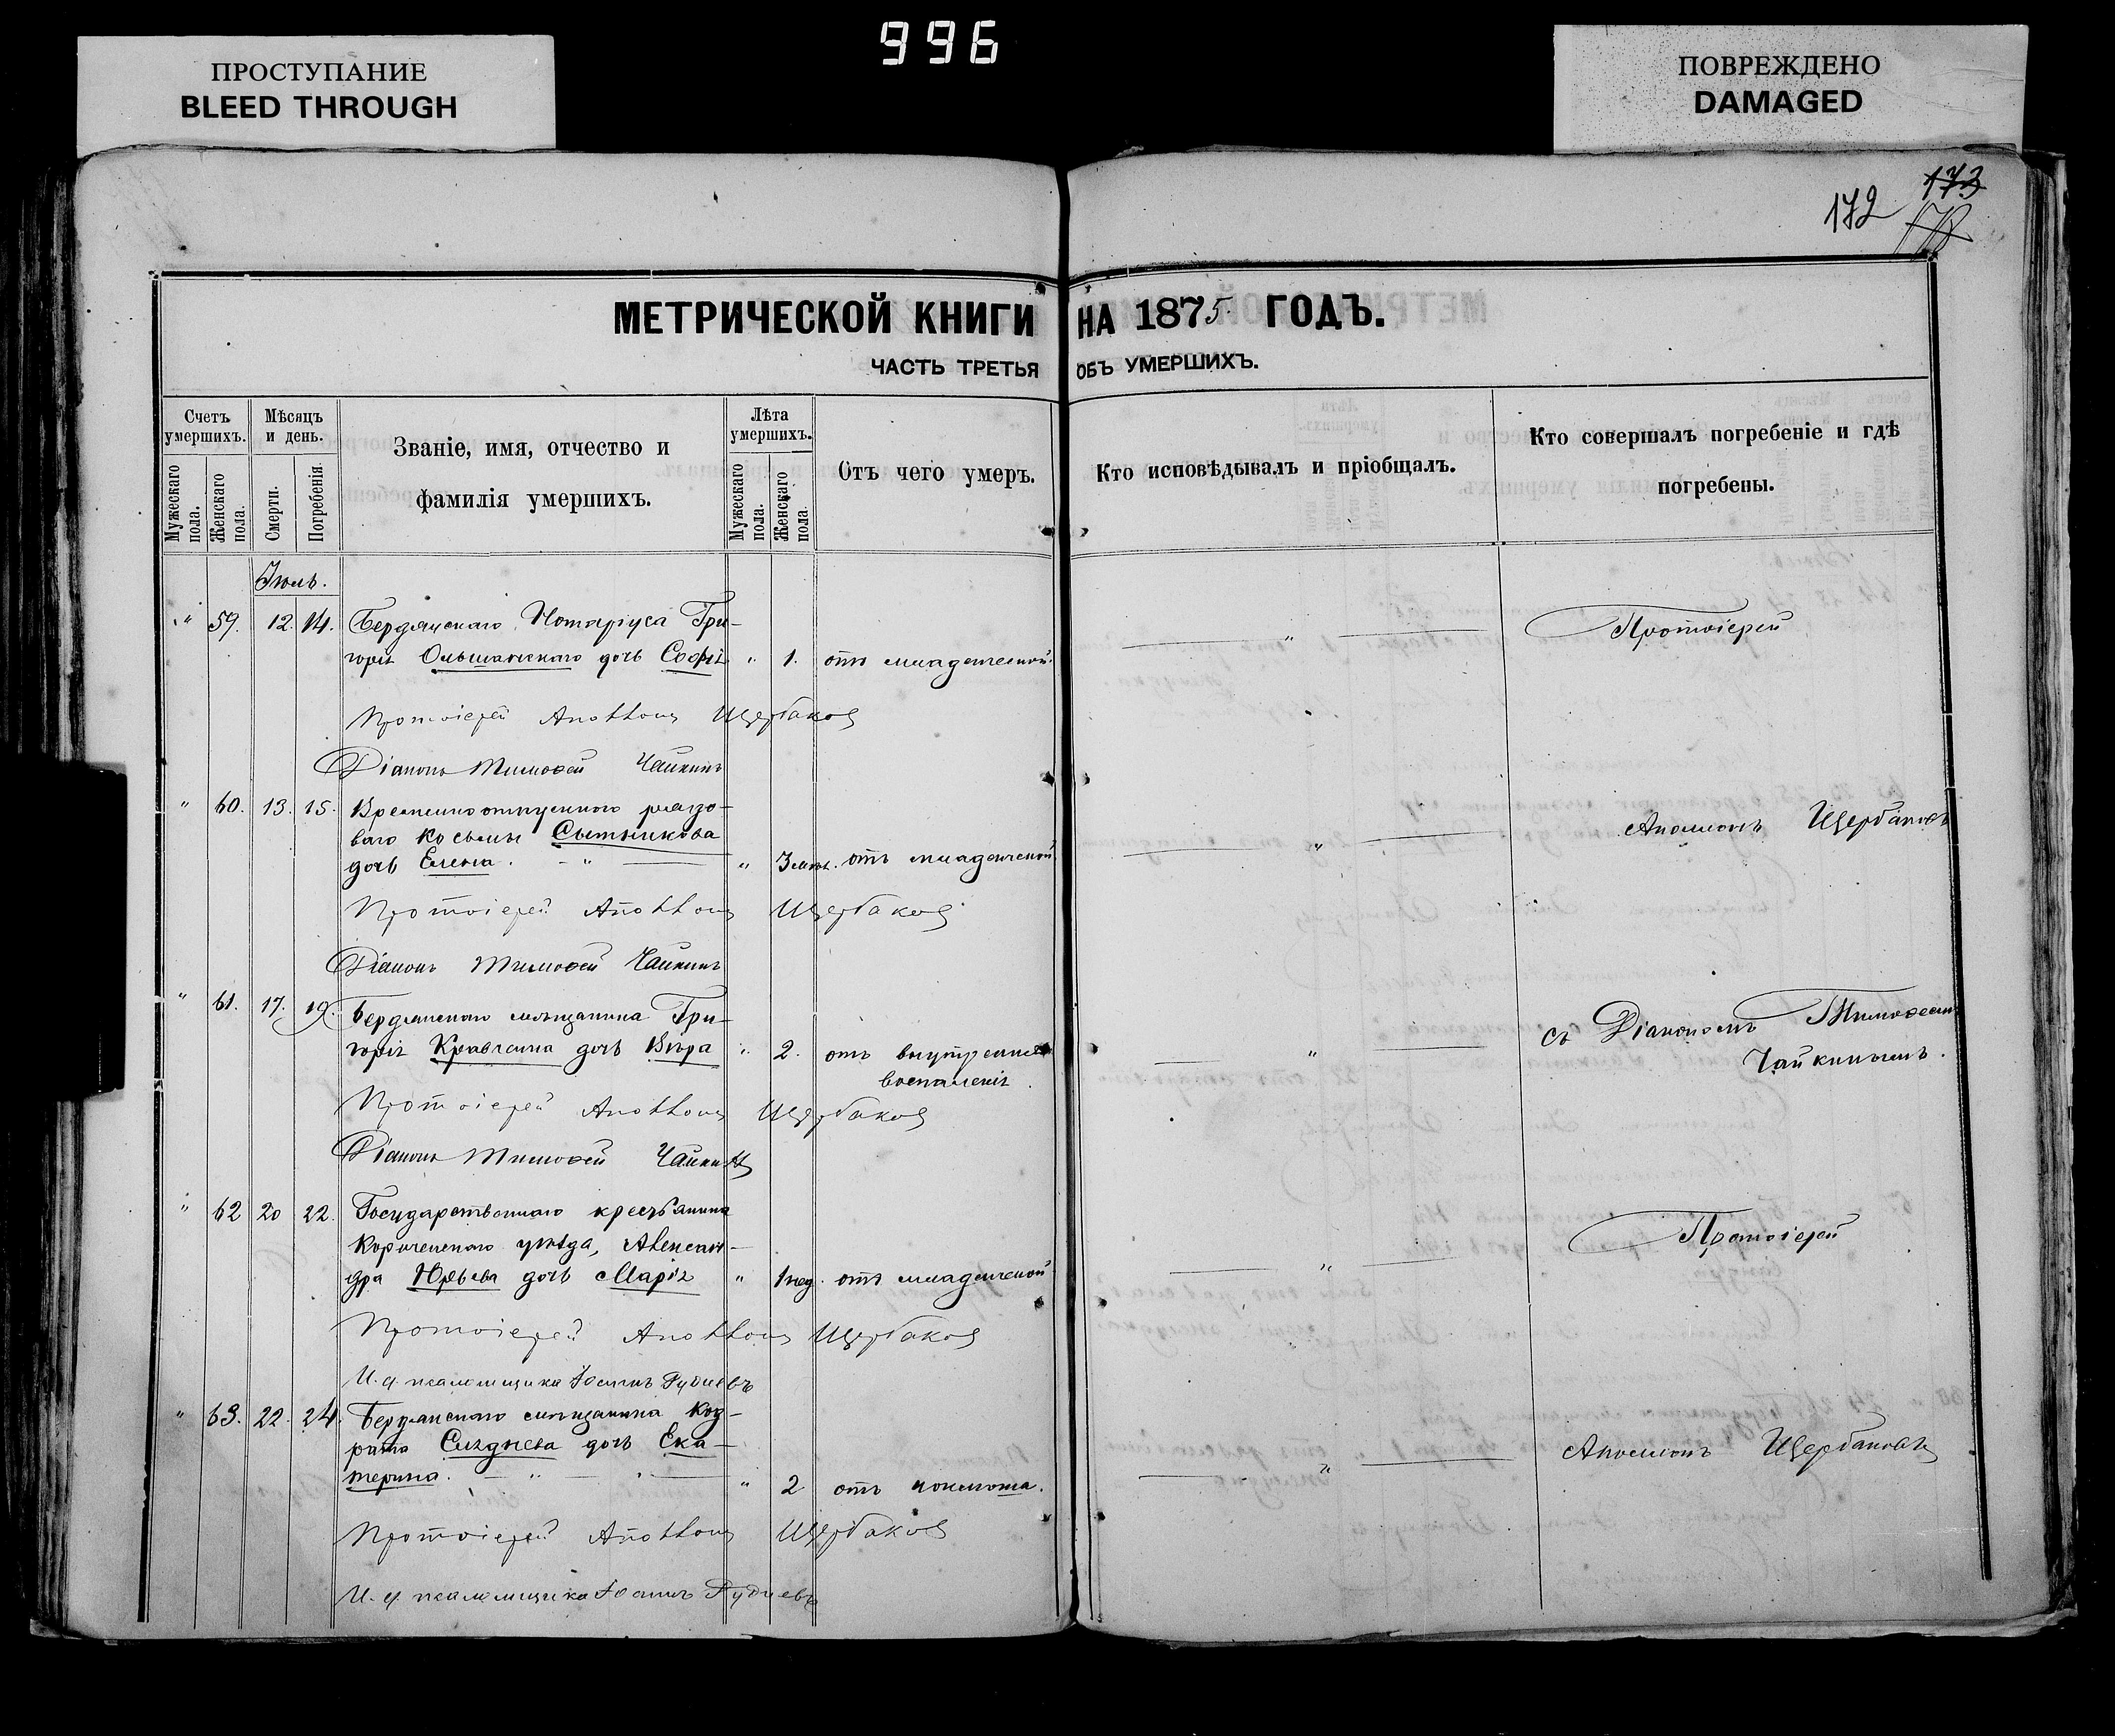 996
ПРОСТУПАНИЕ
BLEED THROUGH
ПОВРЕЖДЕНО
DAMAGED
173
172
МЕТРИЧЕСКОЙ КНИГИ НА 1875 ГОДЪ.
ЧАСТЬ ТРЕТЬЯ ОБЪ УМЕРШИХЪ.
Счетъ умершихъ.
Мужескаго пола.
Женскаго пола.
Мѣсяцъ и день.
Смерти.
Погребенія.
Званіе, имя, отчество и
фамилія умершихъ.
Лѣта умершихъ.
Мужескаго пола.
Женскаго пола.
Отъ чего умеръ.
Кто исповѣдывалъ и пріобщалъ.
Кто совершалъ погребеніе и гдѣ
погребены.
Іюль.
" 59. 12. 14. Бердянскаго Нотаріуса Гри-
горія Ольшанскаго дочь Софія " 1. отъ младенческой
" Протоіерей
Протоіерей Аполлонъ Щербаковъ
Діаконъ Тимофей Чайкинъ
" 60. 13. 15. Временноотпускного рядо-
ваго Косьмы Сытникова
дочь Елена. " " 3 мѣс. отъ младенческой
" Аполлонъ Щербаковъ
Протоіерей Аполлонъ Щербаковъ
Діаконъ Тимофей Чайкинъ
" 61. 17. 19. Бердянскаго мѣщанина Гри-
горія Кравченка дочь Вѣра " 2. отъ внутренняго
воспаленія.
" съ Діакономъ Тимофеемъ
Чайкинымъ.
Протоіерей Аполлонъ Щербаковъ
Діаконъ Тимофей Чайкинъ
" 62 20 22. Государственнаго крестьянина
Корочанскаго уѣзда, Алексан-
дра Юрьева дочь Марія " 1 нед. отъ младенческой
" Протоіерей
Протоіерей Аполлонъ Щербаковъ
И. д. псаломщика Іоаннъ
" 63. 22. 24. Бердянскаго мѣщанина Код-
рата дочь Ека-
терина. " " 2 отъ коклюша.
" Аполлонъ Щербаковъ
Протоіерей Аполлонъ Щербаковъ
И. д. псаломщика Іоаннъ